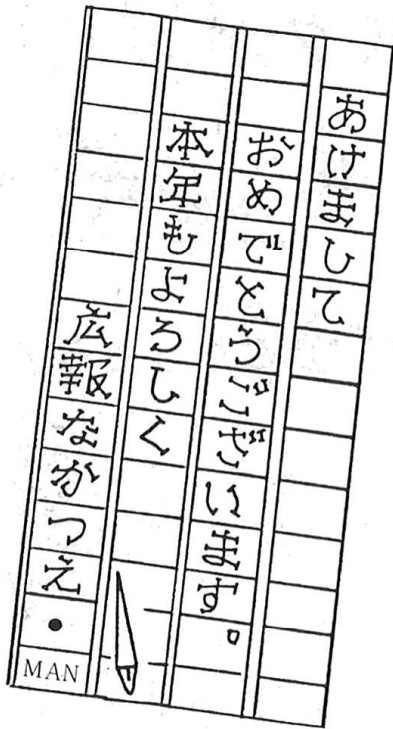 あけまして
おめでとうございます。
本年もよろしく
広報なかつえ・MAN